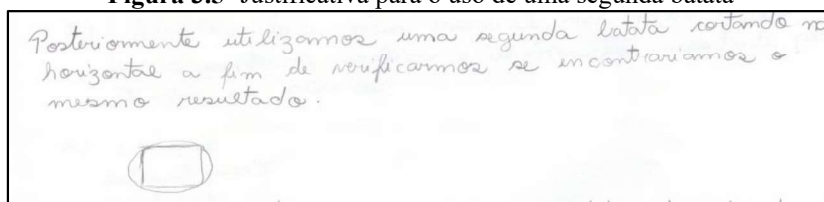 Figura 5.5 Justificativa para o uso de uma segunda batata
Posteriormente utilizamos uma segunda batata cortando na
horizontal a fim de verificarmos se encontrariamos o
mesmo resultado.